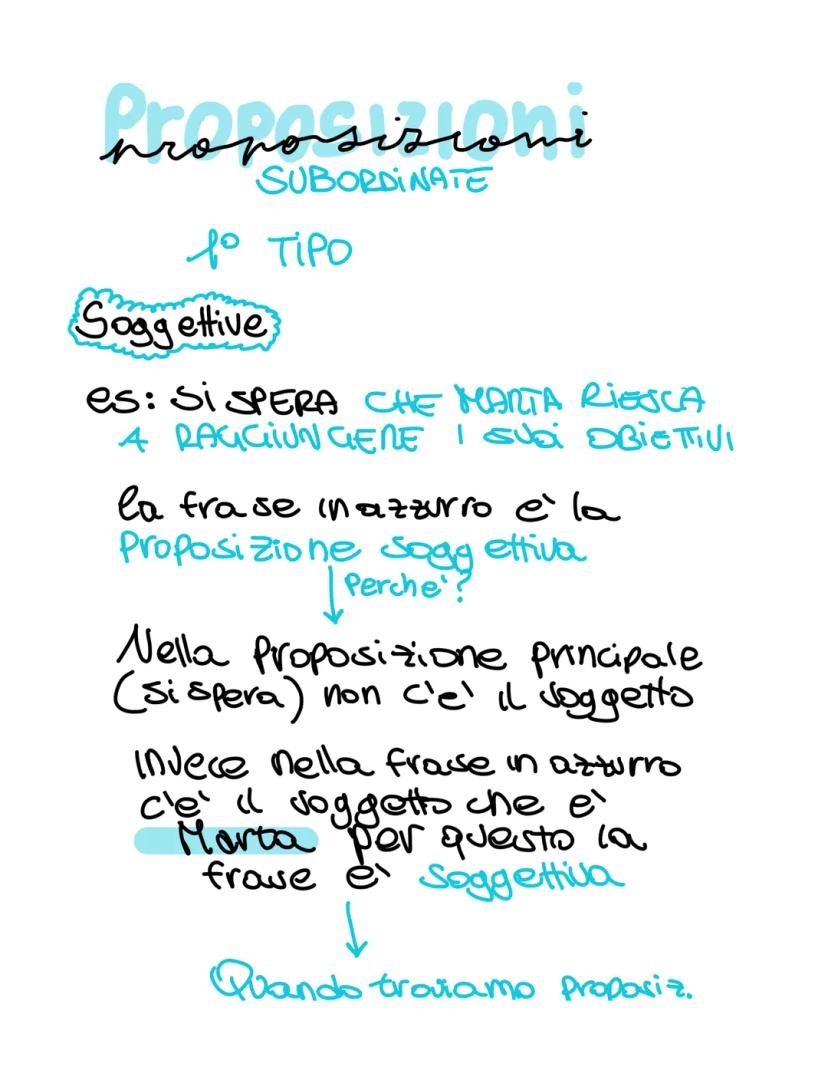 Proposizioni
proposizioni
SUBORDINATE
1° TIPO
Soggettive
es: Si SPERA CHE MARTA RIESCA
A RAGGIUNGERE I SUOI OBIETTIVI
la frase in azzurro e' la
Proposizione soggettiva
Perche'?
Nella Proposizione principale
(si spera) non c'e' il soggetto
Invece nella frase in azzurro
c'e' il soggetto che e'
Marta per questo la
frase e' soggettiva
Quando troviamo proposiz.